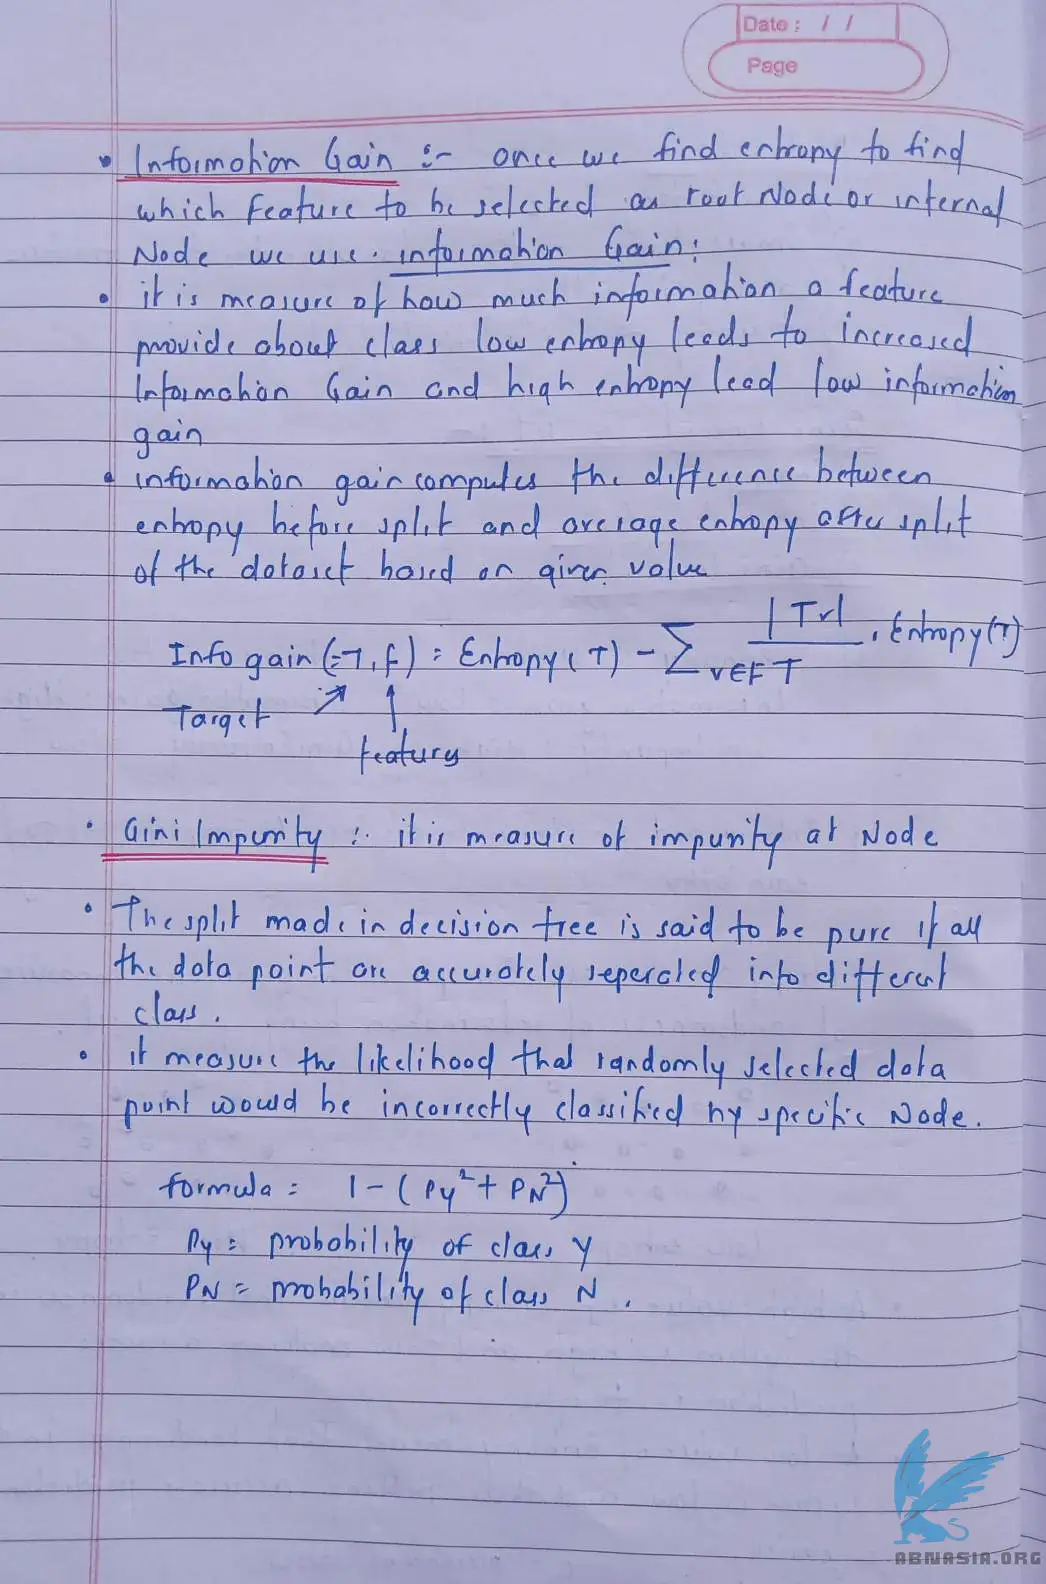 Date : / /
Page
• Information Gain :- once we find entropy to find
which feature to be selected as root Node or internal
Node we use . information Gain :
• it is measure of how much information a feature
provide about class low entropy leads to increased
Information Gain and high entropy lead low information
gain
• information gain computes the difference between
entropy before split and average entropy after split
of the dataset based on given value
Info gain (T, F) = Entropy (T) - Σ v∈F |Tv| / T . Entropy (T)
Target
features
• Gini Impurity :- it is measure of impurity at Node
• The split made in decision tree is said to be pure if all
the data point are accurately seperated into different
class .
• it measure the likelihood that randomly selected data
point would be incorrectly classified by specific Node .
formula = 1 - ( Py² + PN² )
Py = probability of class Y
PN = probability of class N .
ABNASIA.ORG